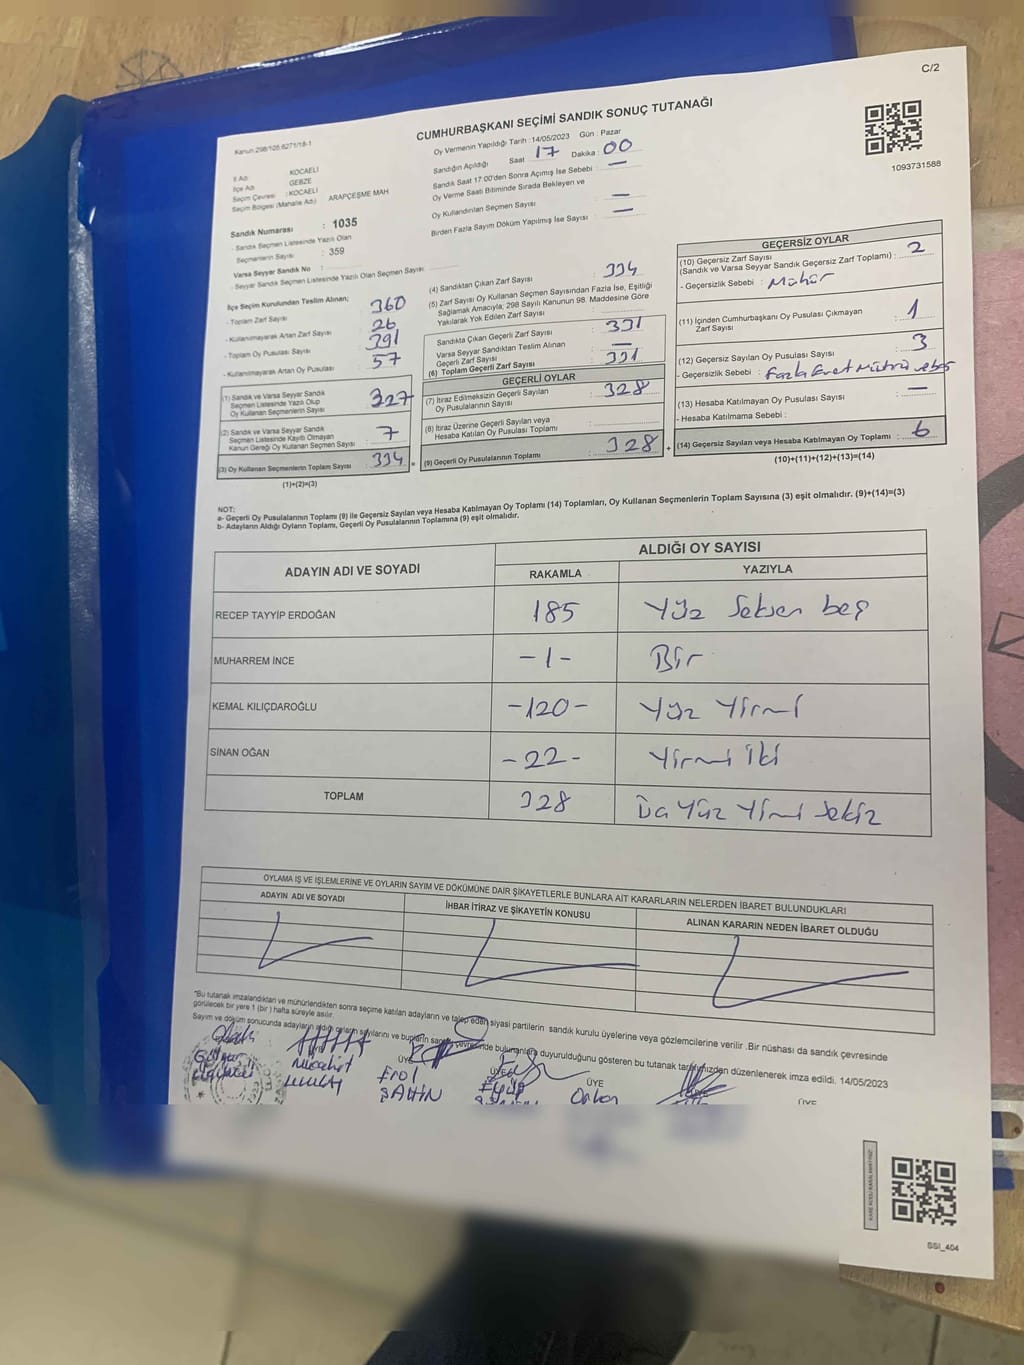 C/2
CUMHURBAŞKANI SEÇİMİ SANDIK SONUÇ TUTANAĞI
Kanun 298/105.6271/18-1
Oy Vermenin Yapıldığı Tarih : 14/05/2023 Gün : Pazar
Sandığın Açıldığı Saat 17 Dakika : 00
Sandık Saat 17:00'den Sonra Açılmış İse Sebebi : —
Oy Verme Saati Bitiminde Sırada Bekleyen ve
Oy Kullandırılan Seçmen Sayısı : —
Birden Fazla Sayım Döküm Yapılmış İse Sayısı : —
1093731588
İl Adı : KOCAELİ
İlçe Adı : GEBZE
Seçim Çevresi : KOCAELİ
Seçim Bölgesi (Mahalle Adı) : ARAPÇEŞME MAH
Sandık Numarası : 1035
- Sandık Seçmen Listesinde Yazılı Olan
Seçmenlerin Sayısı : 359
Varsa Seyyar Sandık No :
- Seyyar Sandık Seçmen Listesinde Yazılı Olan Seçmen Sayısı :
İlçe Seçim Kurulundan Teslim Alınan;
- Toplam Zarf Sayısı : 360
- Kullanılmayarak Artan Zarf Sayısı : 26
- Toplam Oy Pusulası Sayısı : 391
- Kullanılmayarak Artan Oy Pusulası : 57
(1) Sandık ve Varsa Seyyar Sandık
Seçmen Listesinde Yazılı Olup
Oy Kullanan Seçmenlerin Sayısı : 327
(2) Sandık ve Varsa Seyyar Sandık
Seçmen Listesinde Kayıtlı Olmayan
Kanun Gereği Oy Kullanan Seçmen Sayısı : 7
(3) Oy Kullanan Seçmenlerin Toplam Sayısı : 334 =
(1)+(2)=(3)
(4) Sandıktan Çıkan Zarf Sayısı : 334
(5) Zarf Sayısı Oy Kullanan Seçmen Sayısından Fazla İse, Eşitliği
Sağlamak Amacıyla; 298 Sayılı Kanunun 98. Maddesine Göre
Yakılarak Yok Edilen Zarf Sayısı :
Sandıkta Çıkan Geçerli Zarf Sayısı : 331
Varsa Seyyar Sandıktan Teslim Alınan
Geçerli Zarf Sayısı : —
(6) Toplam Geçerli Zarf Sayısı : 331
GEÇERLİ OYLAR
(7) İtiraz Edilmeksizin Geçerli Sayılan
Oy Pusulalarının Sayısı : 328
(8) İtiraz Üzerine Geçerli Sayılan veya
Hesaba Katılan Oy Pusulası Toplamı :
(9) Geçerli Oy Pusulalarının Toplamı : 328 +
GEÇERSİZ OYLAR
(10) Geçersiz Zarf Sayısı
(Sandık ve Varsa Seyyar Sandık Geçersiz Zarf Toplamı) : 2
- Geçersizlik Sebebi : Mühür
(11) İçinden Cumhurbaşkanı Oy Pusulası Çıkmayan
Zarf Sayısı : 1
(12) Geçersiz Sayılan Oy Pusulası Sayısı : 3
- Geçersizlik Sebebi : Fazla Evet Mührü
(13) Hesaba Katılmayan Oy Pusulası Sayısı : —
- Hesaba Katılmama Sebebi :
(14) Geçersiz Sayılan veya Hesaba Katılmayan Oy Toplamı : 6
(10)+(11)+(12)+(13)=(14)
NOT:
a- Geçerli Oy Pusulalarının Toplamı (9) ile Geçersiz Sayılan veya Hesaba Katılmayan Oy Toplamı (14) Toplamları, Oy Kullanan Seçmenlerin Toplam Sayısına (3) eşit olmalıdır. (9)+(14)=(3)
b- Adayların Aldığı Oyların Toplamı, Geçerli Oy Pusulalarının Toplamına (9) eşit olmalıdır.
ADAYIN ADI VE SOYADI ALDIĞI OY SAYISI
RAKAMLA YAZIYLA
RECEP TAYYİP ERDOĞAN 185 Yüz Seksen beş
MUHARREM İNCE -1- Bir
KEMAL KILIÇDAROĞLU -120- Yüz Yirmi
SİNAN OĞAN -22- Yirmi İki
TOPLAM 328 Üç Yüz Yirmi Sekiz
OYLAMA İŞ VE İŞLEMLERİNE VE OYLARIN SAYIM VE DÖKÜMÜNE DAİR ŞİKAYETLERLE BUNLARA AİT KARARLARIN NELERDEN İBARET BULUNDUKLARI
ADAYIN ADI VE SOYADI İHBAR İTİRAZ VE ŞİKAYETİN KONUSU ALINAN KARARIN NEDEN İBARET OLDUĞU
"Bu tutanak imzalandıktan ve mühürlendikten sonra seçime katılan adayların ve talep eden siyasi partilerin sandık kurulu üyelerine veya gözlemcilerine verilir .Bir nüshası da sandık çevresinde
görülecek bir yere 1 (bir ) hafta süreyle asılır.
Sayım ve döküm sonucunda adayların aldığı oyların sayılarını ve bunların sandık çevresinde bulunanlara duyurulduğunu gösteren bu tutanak tarafımızdan düzenlenerek imza edildi. 14/05/2023
ÜYE ÜYE ÜYE ÜYE
Erol
ŞAHİN
Eyüp
Orhan
SSI_404